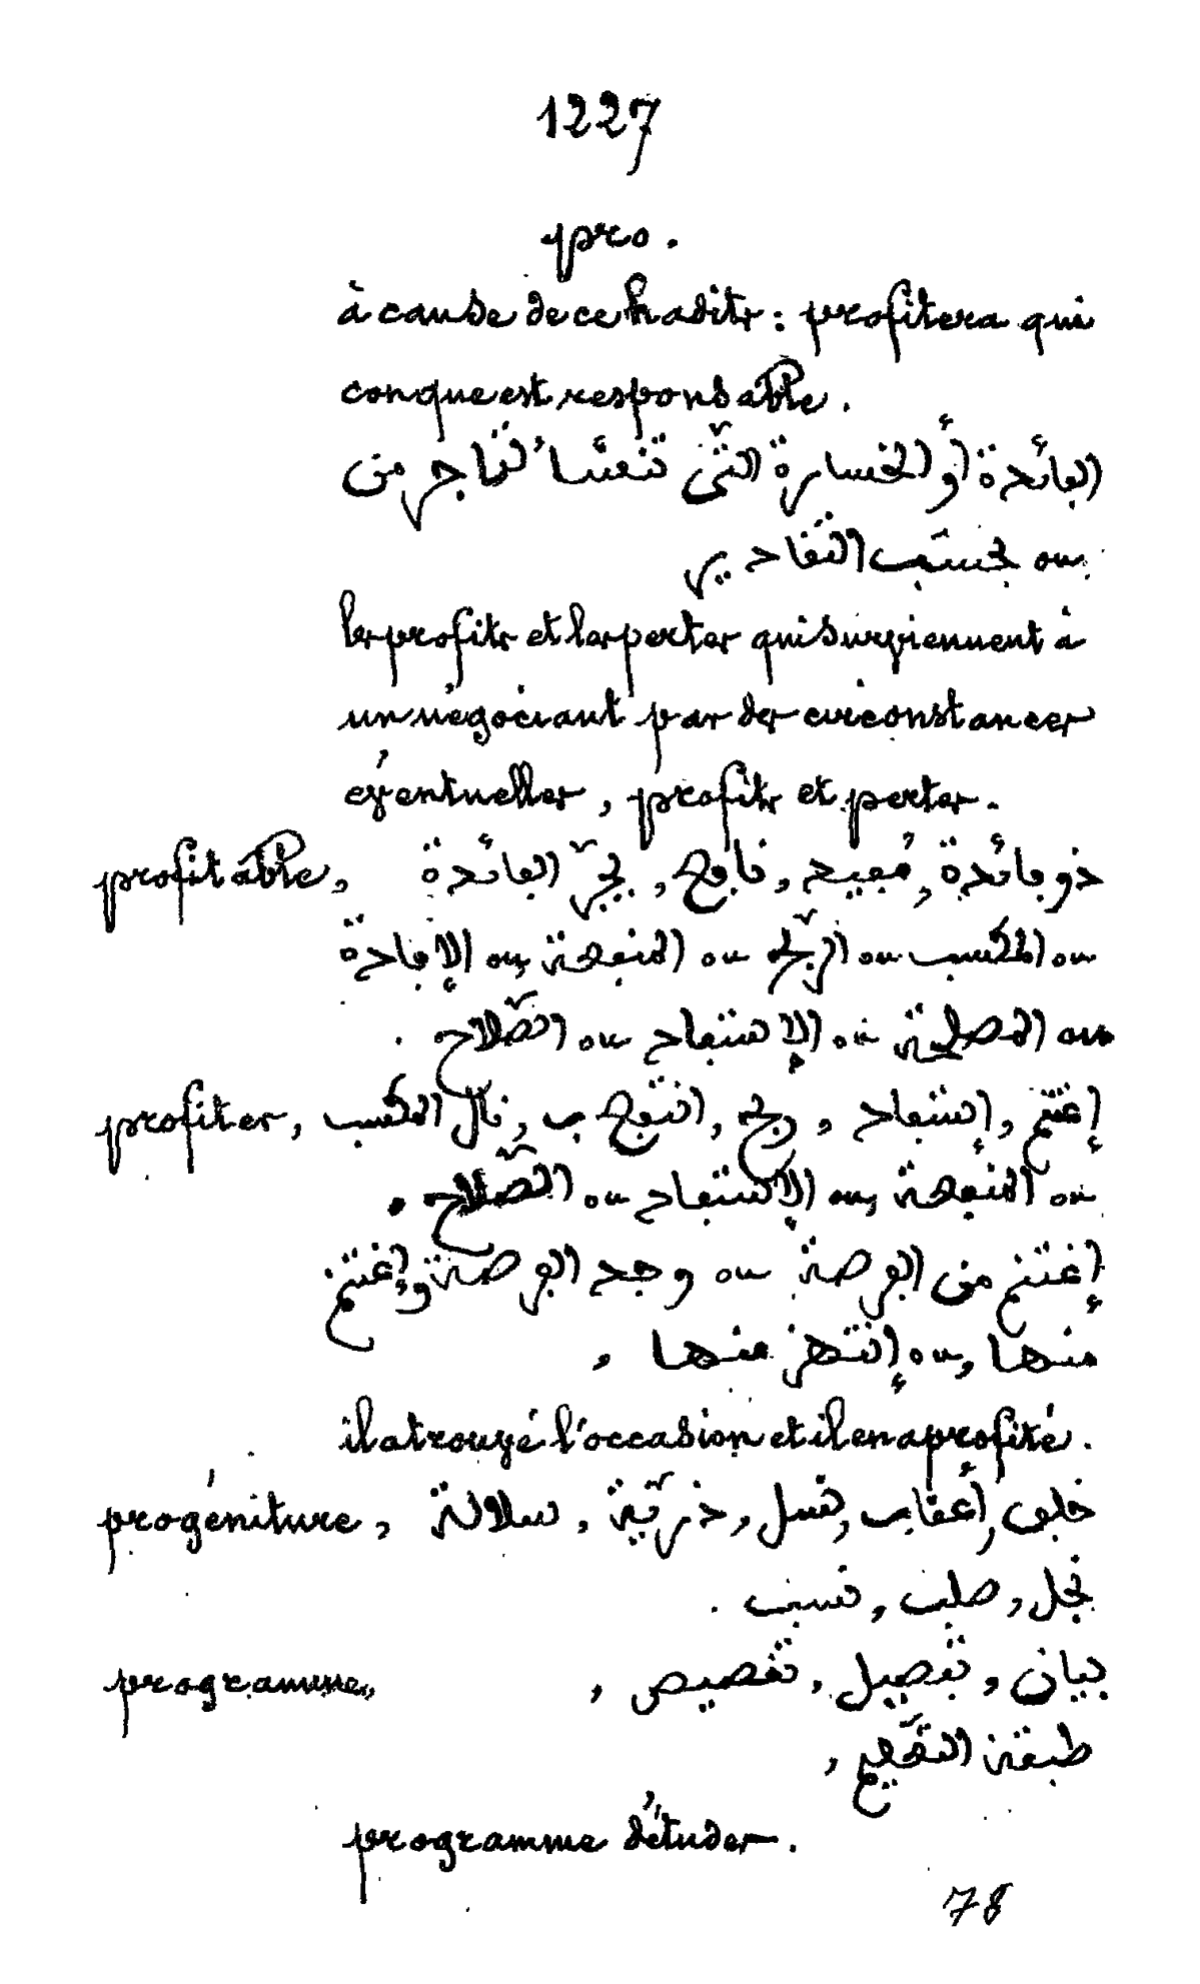 1227
pro.
à cause de ces hadits : profitera qui
conque est responsable.
الفائدة أو الخسارة التّي تنشأ لتاجر من
ou بحسَب التّقادير
les profits et les pertes qui surviennent à
un négociant par des circonstances
éventuelles, profits et pertes.
profitable, ذو فائدة, مُفيد, نافع, يجرّ الفائدة
ou المكسب ou الرّبح ou المنفعة ou الإفادة
ou المصلحة ou الإستفاد ou الصّلاح.
profiter, إغتنم, إستفاد, ربح, انتفع ب, نال المكسب
ou المنفعة ou الإستفاد ou الصّلاح.
إغتنم من الفرصة ou وجد الفرصة وإغتنم
منها, ou إنتهز منها,
il a trouvé l'occasion et il en a profité.
progéniture, خلف, أعقاب, نسل, ذرّيّة, سلالة,
نجل, صلب, نسب.
programme, بيان, تفصيل, تقصيص,
طبقة التّعليم,
programme d'études.
78